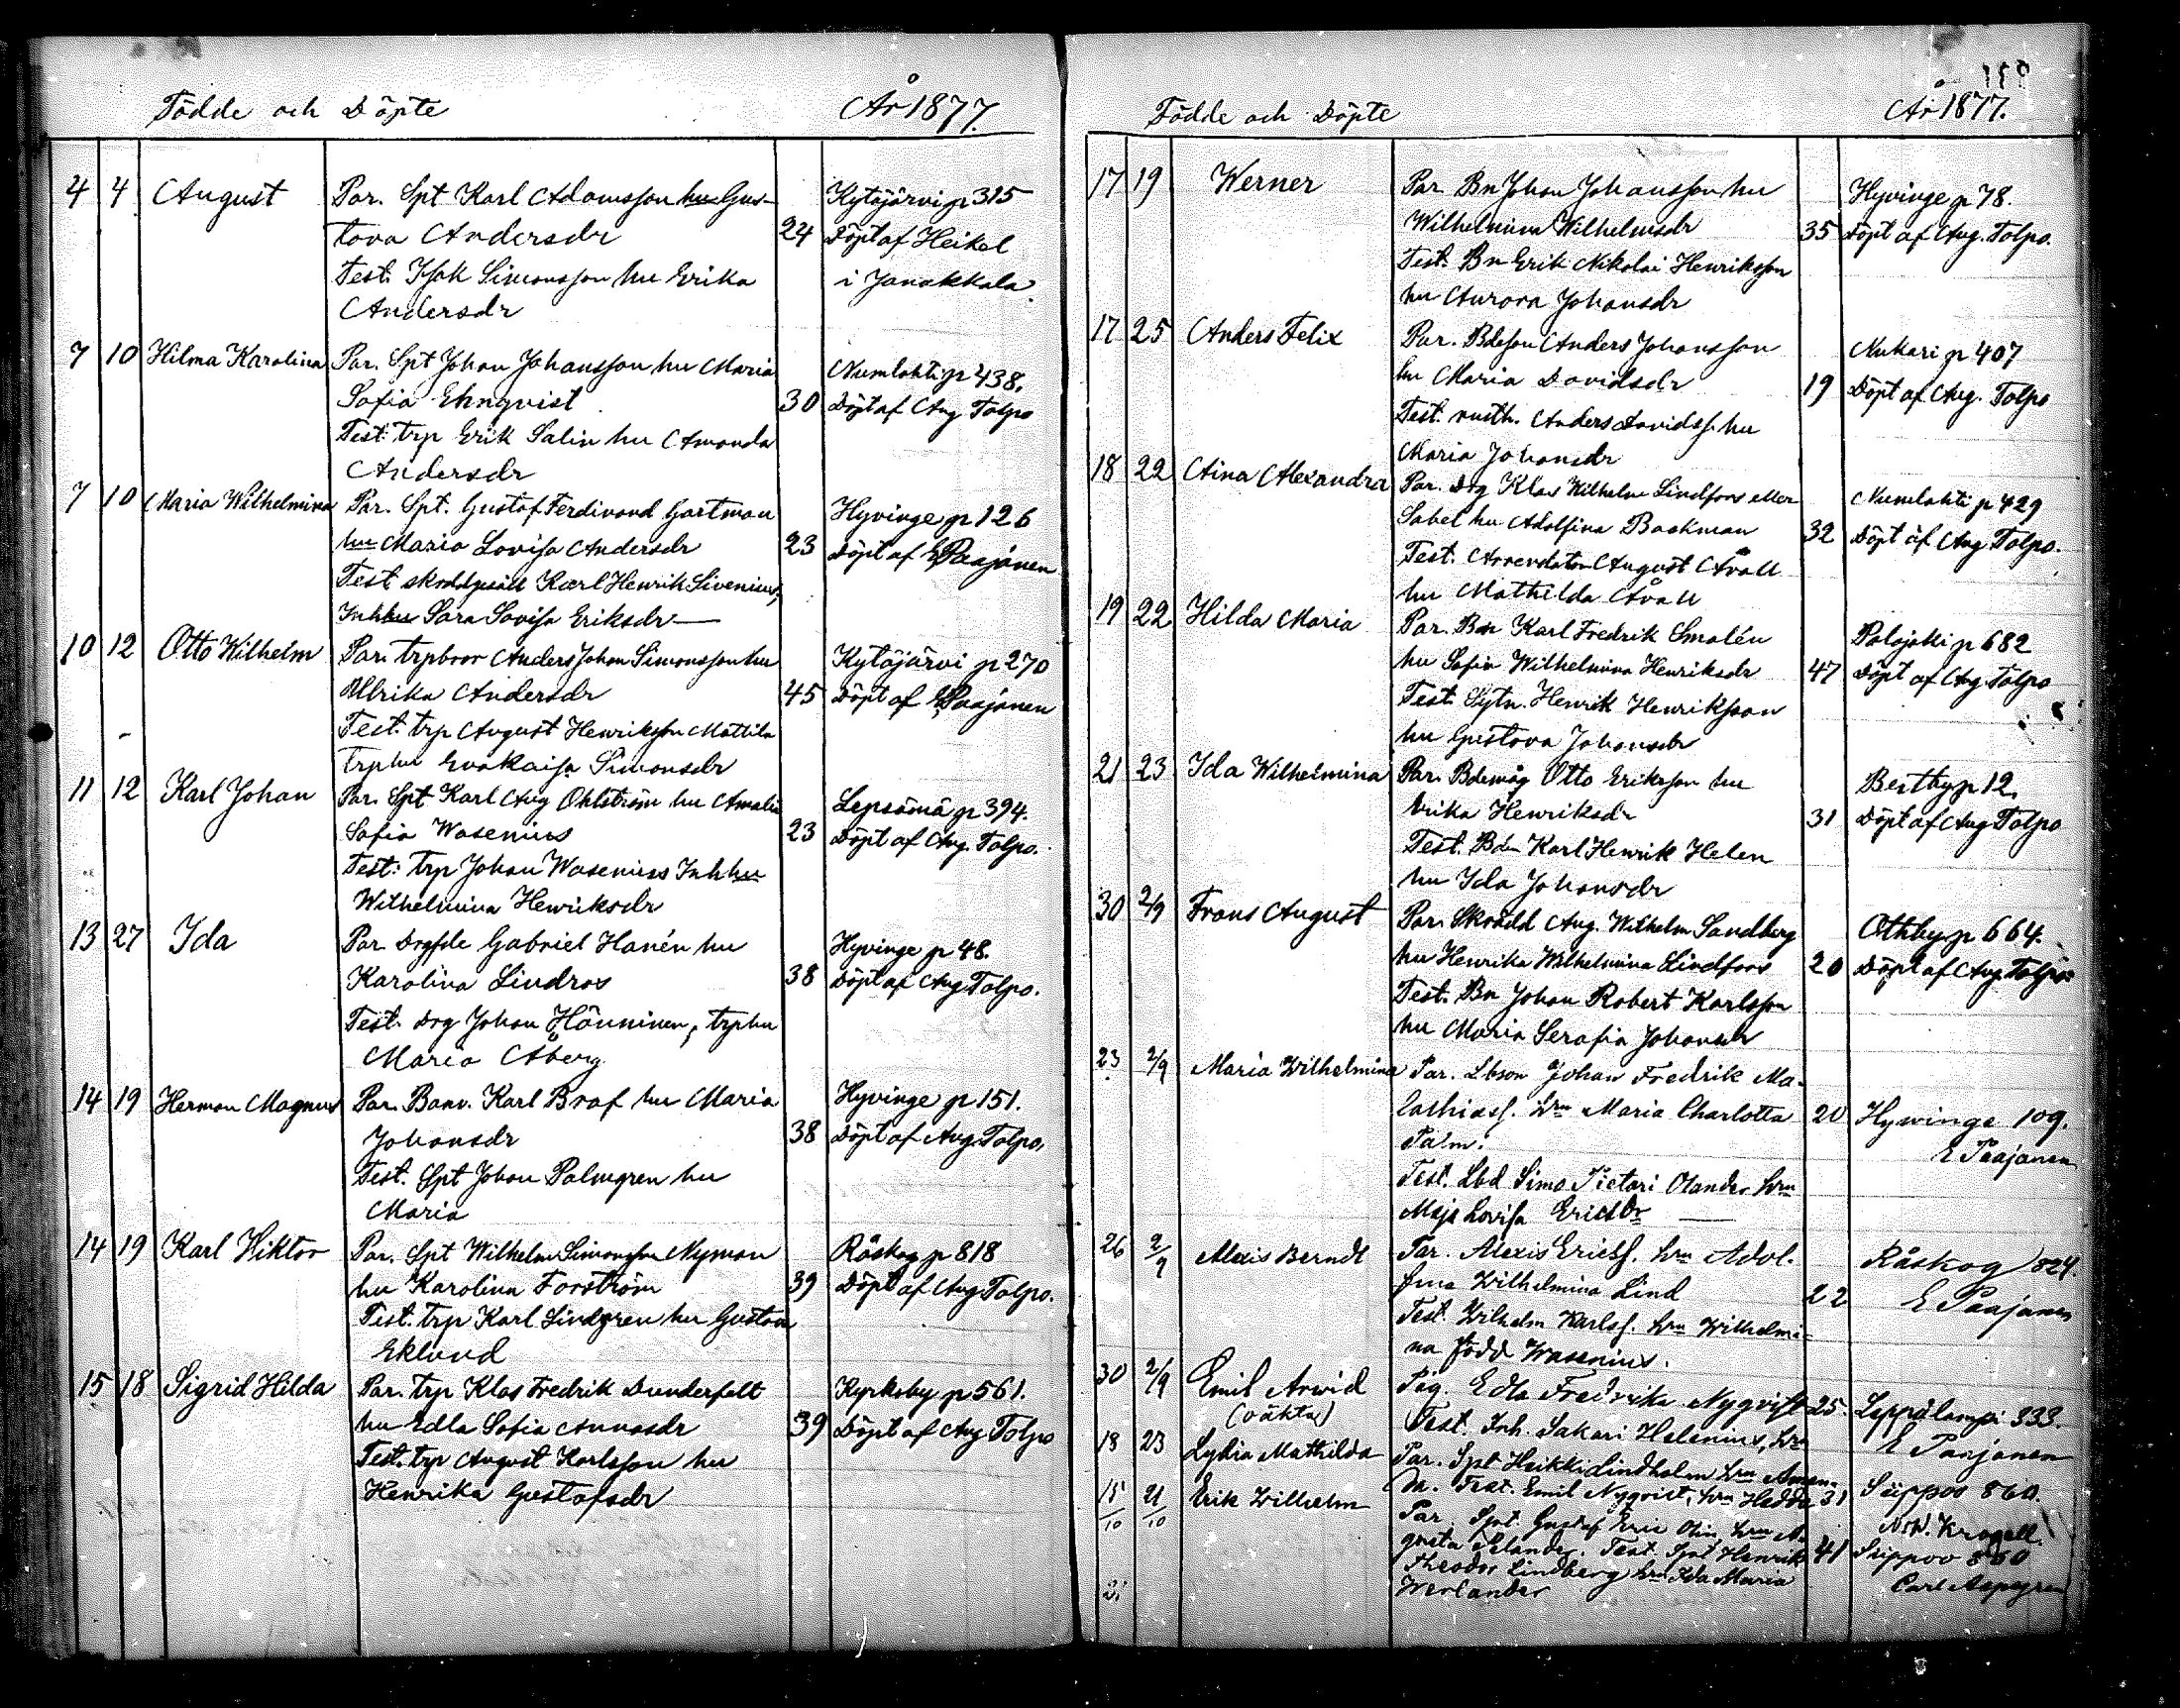 Födde och Döpte År 1877.
4 4 August Par. Spt Karl Adamsson hu Gus-
tava Andersdr 24
Test. Isak Simonsson hu Erika
Andersdr
Kytäjärvi p 315
Döpt af Heikel
i Janakkala
7 10 Hilma Karolina Par. Spt Johan Johansson hu Maria
Sofia Ehnqvist 30
Test. trp Erik Salin hu Amanda
Andersdr
Numlahti p 438.
Döpt af Aug Tolpo
7 10 Maria Wilhelmina Par. Spt. Gustaf Ferdinand Gartman
hu Maria Lovisa Andersdr 23
Test Karl Henrik Sivenius,
Inhhu Sara Lovisa Eriksdr
Hyvinge p 126
Döpt af E Paajanen
10 12 Otto Wilhelm Par. trpbror Anders Johan Simonsson hu
Ulrika Andersdr 45
Test. trp August Henriksson Mattila
trphu Evakaisa Simonsdr
Kytäjärvi p 270
Döpt af E Paajanen
11 12 Karl Johan Par. Spt Karl Aug Ohlström hu Amalia
Sofia Wasenius 23
Test: trp Johan Wasenius Inhhu
Wilhelmina Henriksdr
Lepsämä p 394.
Döpt af Aug. Tolpo.
13 27 Ida Par Drgsde Gabriel Hanén hu
Karolina Lindros 38
Test. Drg Johan Hänninen, trphu
Maria Åberg
Hyvinge p 48.
Döpt af Aug Tolpo.
14 19 Herman Magnus Par. Banv. Karl Braf hu Maria
Johansdr 38
Test. Spt Johan Palmgren hu
Maria
Hyvinge p 151.
Döpt af Aug. Tolpo.
14 19 Karl Hiktor Par. Spt Wilhelm Simonsson Nyman
hu Karolina Forström 39
Test. trp Karl Lindgren hu Gustava
Eklund
Råskog p 818
Döpt af Aug Tolpo.
15 18 Sigrid Hilda Par. trp Klas Fredrik Dunderfelt
hu Edla Sofia Annasdr 39
Test. trp August Karlsson hu
Henrika Gustafsdr
Kyrkoby p 561.
Döpt af Aug Tolpo
Födde och Döpte År 1877.
17 19 Werner Par. Bn Johan Johansson hu
Wilhelmina Wilhelmsdr 35
Test. Bn Erik Nikolai Henriksson
hu Aurora Johansdr
Hyvinge p 78.
Döpt af Aug. Tolpo.
17 25 Anders Felix Par. Bdeson Anders Johansson
hu Maria Davidsdr 19
Test. rusth. Anders Davidss. hu
Maria Johansdr
Nukari p 407
Döpt af Aug. Tolpo
18 22 Aina Alexandra Par. Drg Klas Wilhelm Lindfors eller
Sabel hu Adolfina Backman 32
Test. Arrendatorn August Åvall
hu Mathilda Åvall
Numlahti p 429
Döpt af Aug Tolpo.
19 22 Hilda Maria Par. Bdn Karl Fredrik Smalén
hu Sofia Wilhelmina Henriksdr 47
Test. Sytn. Henrik Henriksson
hu Gustava Johansdr
Palojoki p 682
Döpt af Aug Tolpo
21 23 Ida Wilhelmina Par. Bdemåg Otto Eriksson hu
Erika Henriksdr 31
Test. Bdn Karl Henrik Helen
hu Ida Johansdr
Bestby p 12.
Döpt af Aug Tolpo
30 2/9 Frans August Par. Skrädd Aug. Wilhelm Sandberg
hu Henrika Wilhelmina Lindfors 20
Test. Bn Johan Robert Karlsson
hu Maria Serafia Johansdr
Othby p 664.
Döpt af Aug. Tolpo.
23 2/9 Maria Wilhelmina Par. Lbson Johan Fredrik Ma-
lachiass. hrn Maria Charlotta 20
Palm.
Test. Lbd Simo Pietari Olander hrn
Maja Lovisa Ericsdr
Hyvinge 109.
E Paajanen
26 2/9 Alexis Berndt Par. Alexis Ericss. hrn Adol-
fina Wilhelmina Lind 22
Test. Wilhelm Karlss. hrn Wilhelmi-
na född Wasenius.
Råskog 824.
E Paajanen
30 2/9 Emil Arwid
(oäkta)
Pig. Edla Fredrika Nyqvist 25.
Test. Inh. Sakari Helenius, hrn
Leppälampi 333.
E Paajanen
18 23 Lydia Mathilda Par. Spt Heikki Lindholm hrn Aman-
da. Test. Emil Nyqvist, hrn Hedda 31
Siippoo 860.
15/10 21/10 Erik Wilhelm Par. Spt. Gustaf Eric Olin hrn Au-
gusta Selander. Test. Spt Henrik 41
Theodor Lindberg hrn Ida Maria
Werlander
Siippoo 860
Carl Aspgren